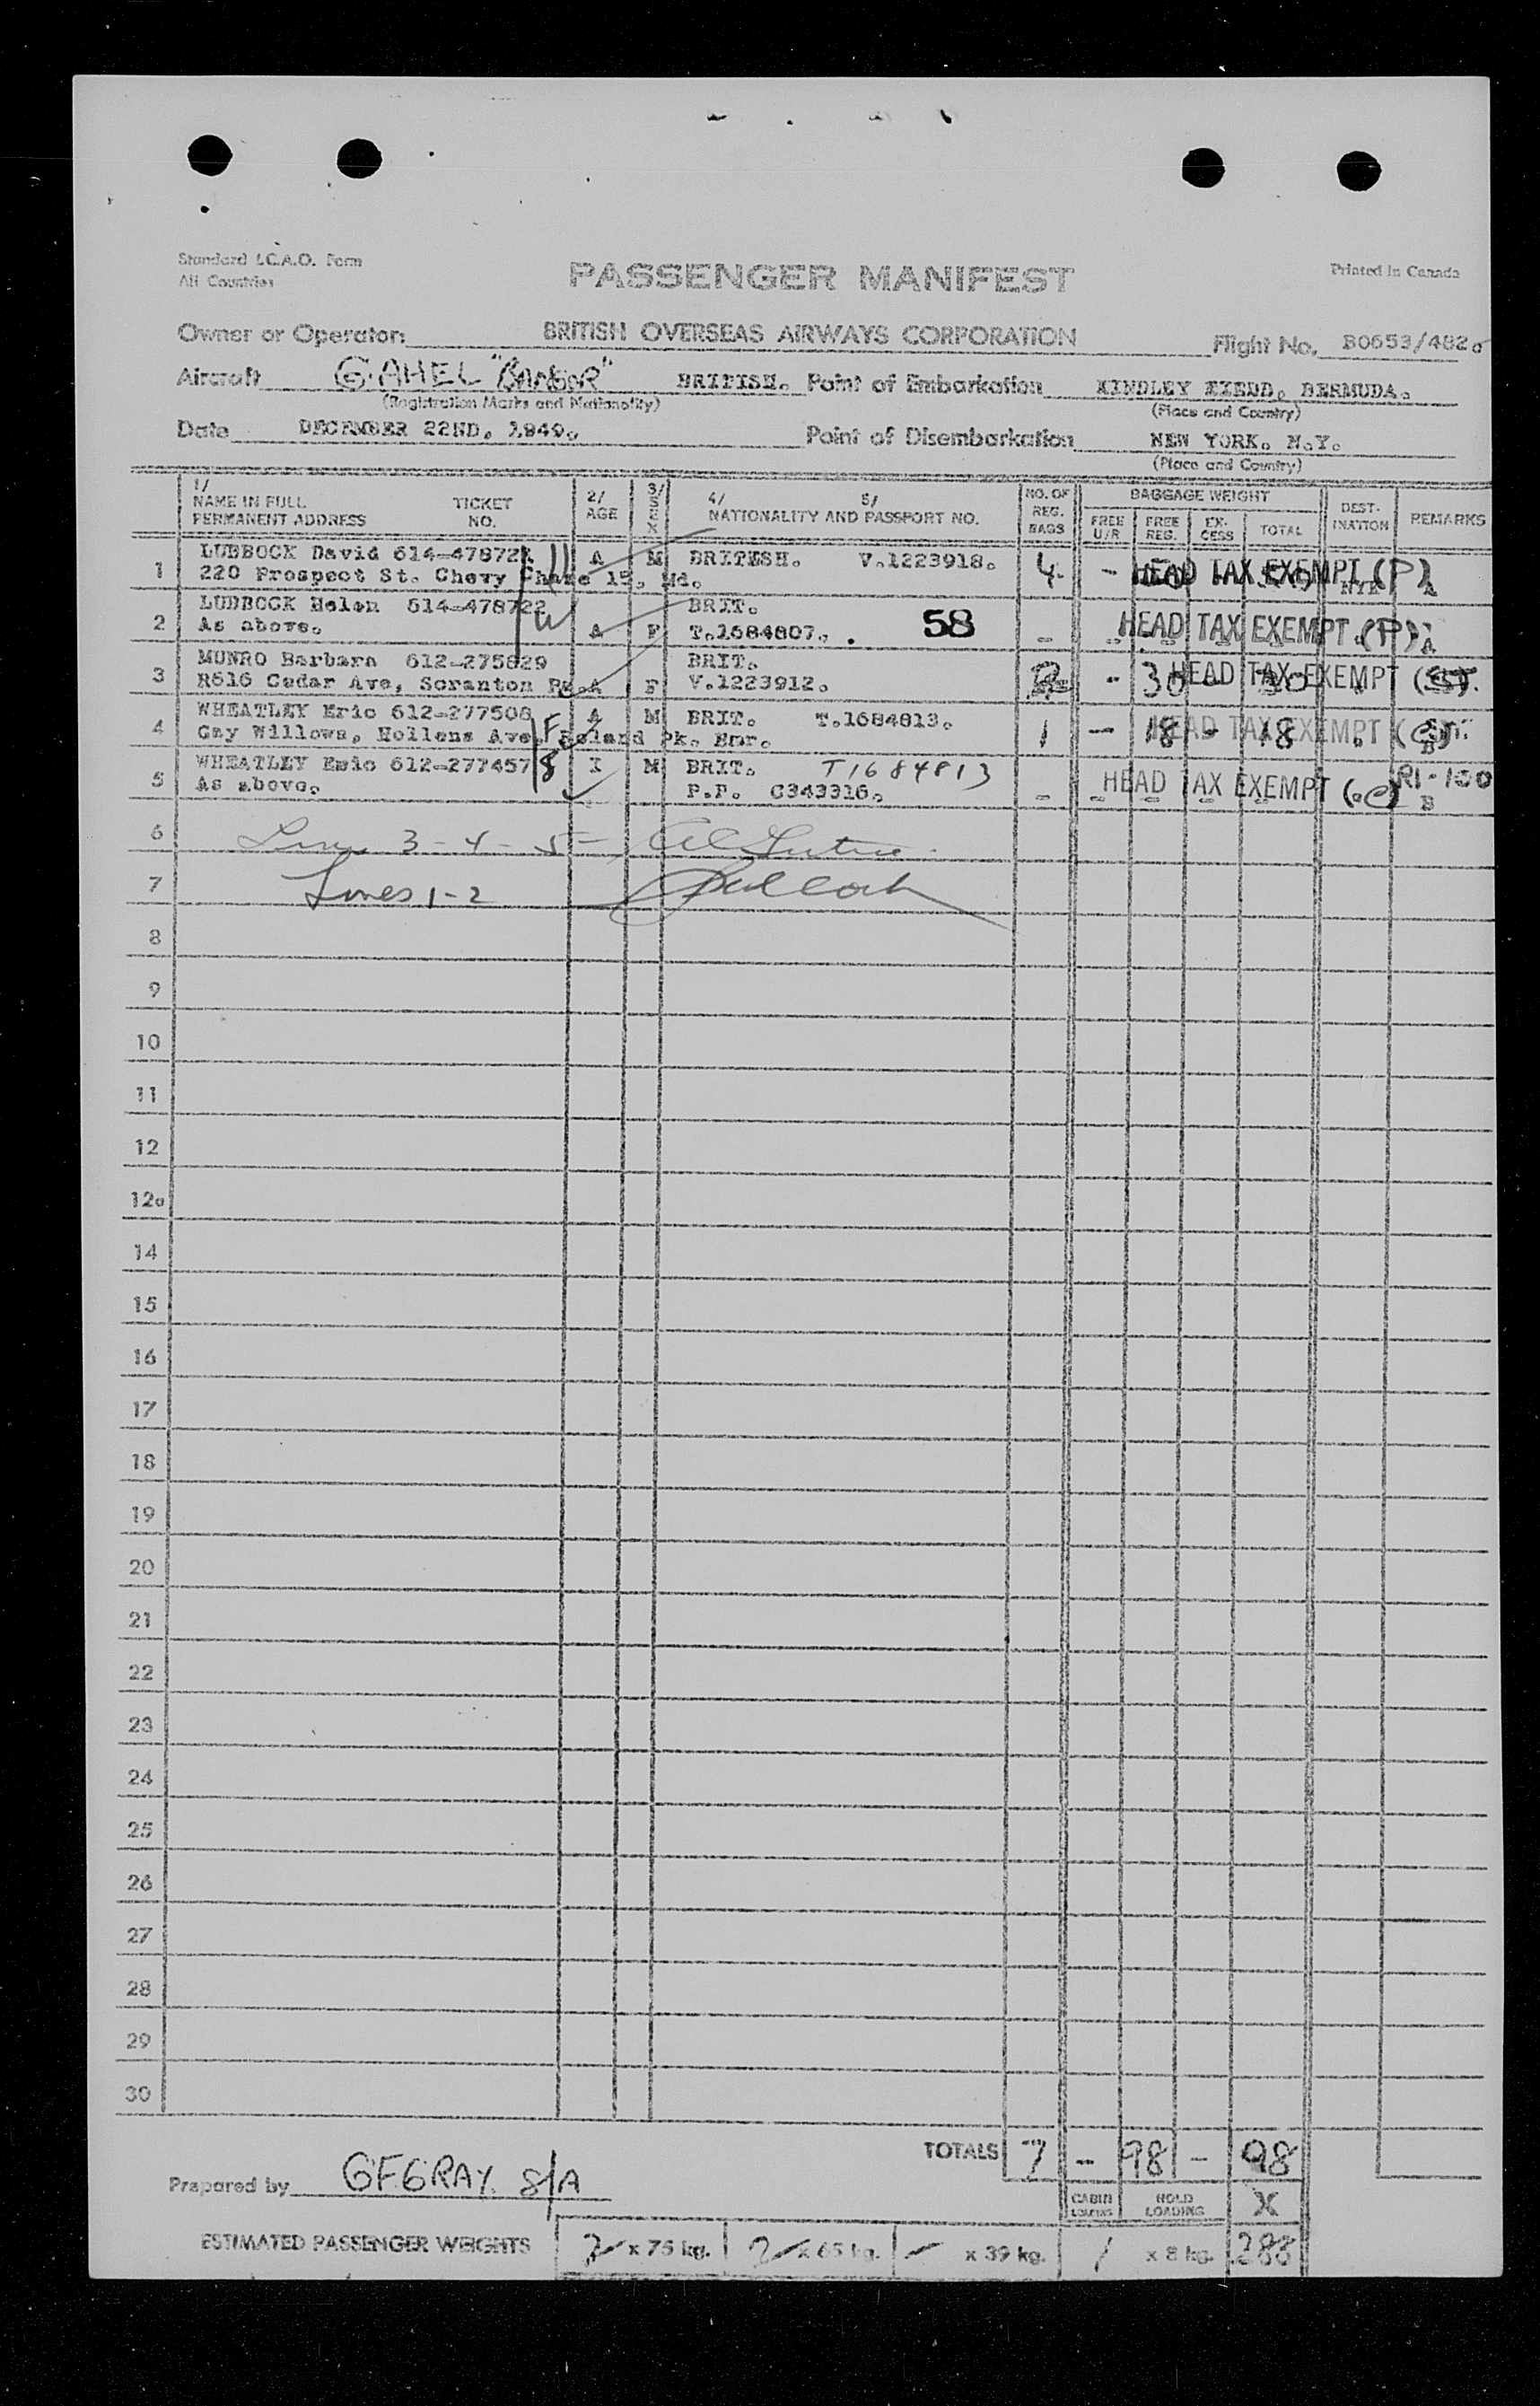 Standard I.C.A.O. Form
All Countries
PASSENGER MANIFEST
Printed in Canada
Owner or Operator: BRITISH OVERSEAS AIRWAYS CORPORATION Flight No. B0653/482
Aircraft G.AHEL "BANGOR" BRITISH. Point of Embarkation KINDLEY FIELD, BERMUDA.
(Registration Marks and Nationality) (Place and Country)
Date DECEMBER 22ND. 1949. Point of Disembarkation NEW YORK. N.Y.
(Place and Country)
1/ NAME IN FULL PERMANENT ADDRESS TICKET NO. 2/ AGE 3/ SEX 4/ 5/ NATIONALITY AND PASSPORT NO. NO. OF REG. BAGS BAGGAGE WEIGHT FREE U/R FREE REG. EX-CESS TOTAL DEST-INATION REMARKS
1 LUBBOCK David 614-478721 A M BRITISH. V.1223918. 4 - HEAD TAX EXEMPT (P) A
220 Prospect St. Chevy Chase 15, Md.
2 LUBBOCK Helen 614-478722 BRIT. 58 - HEAD TAX EXEMPT (P) A
As above. A F T.1684807.
3 MUNRO Barbara 612-275829 BRIT. 2 - 30 - 30 HEAD TAX EXEMPT
R616 Cedar Ave, Scranton Pa. A F V.1223912.
4 WHEATLEY Eric 612-277508 A M BRIT. T.1684813. 1 - 18 - 18 HEAD TAX EXEMPT
Gay Willows, Hollens Ave. Roland Pk. Bmr.
5 WHEATLEY Eric 612-277457 I M BRIT. T1684813 R1-100
As above. P.P. C343316. - HEAD TAX EXEMPT (C) B
6 Lines 3-4-5-
7 Lines 1-2
8
9
10
11
12
12a
14
15
16
17
18
19
20
21
22
23
24
25
26
27
28
29
30
TOTALS 7 - 98 - 98
Prepared by G F GRAY. S/A
CABIN LOADING HOLD LOADING X
ESTIMATED PASSENGER WEIGHTS 2 x 75 kg. 2 x 65 kg. - x 39 kg. 1 x 8 kg. 288